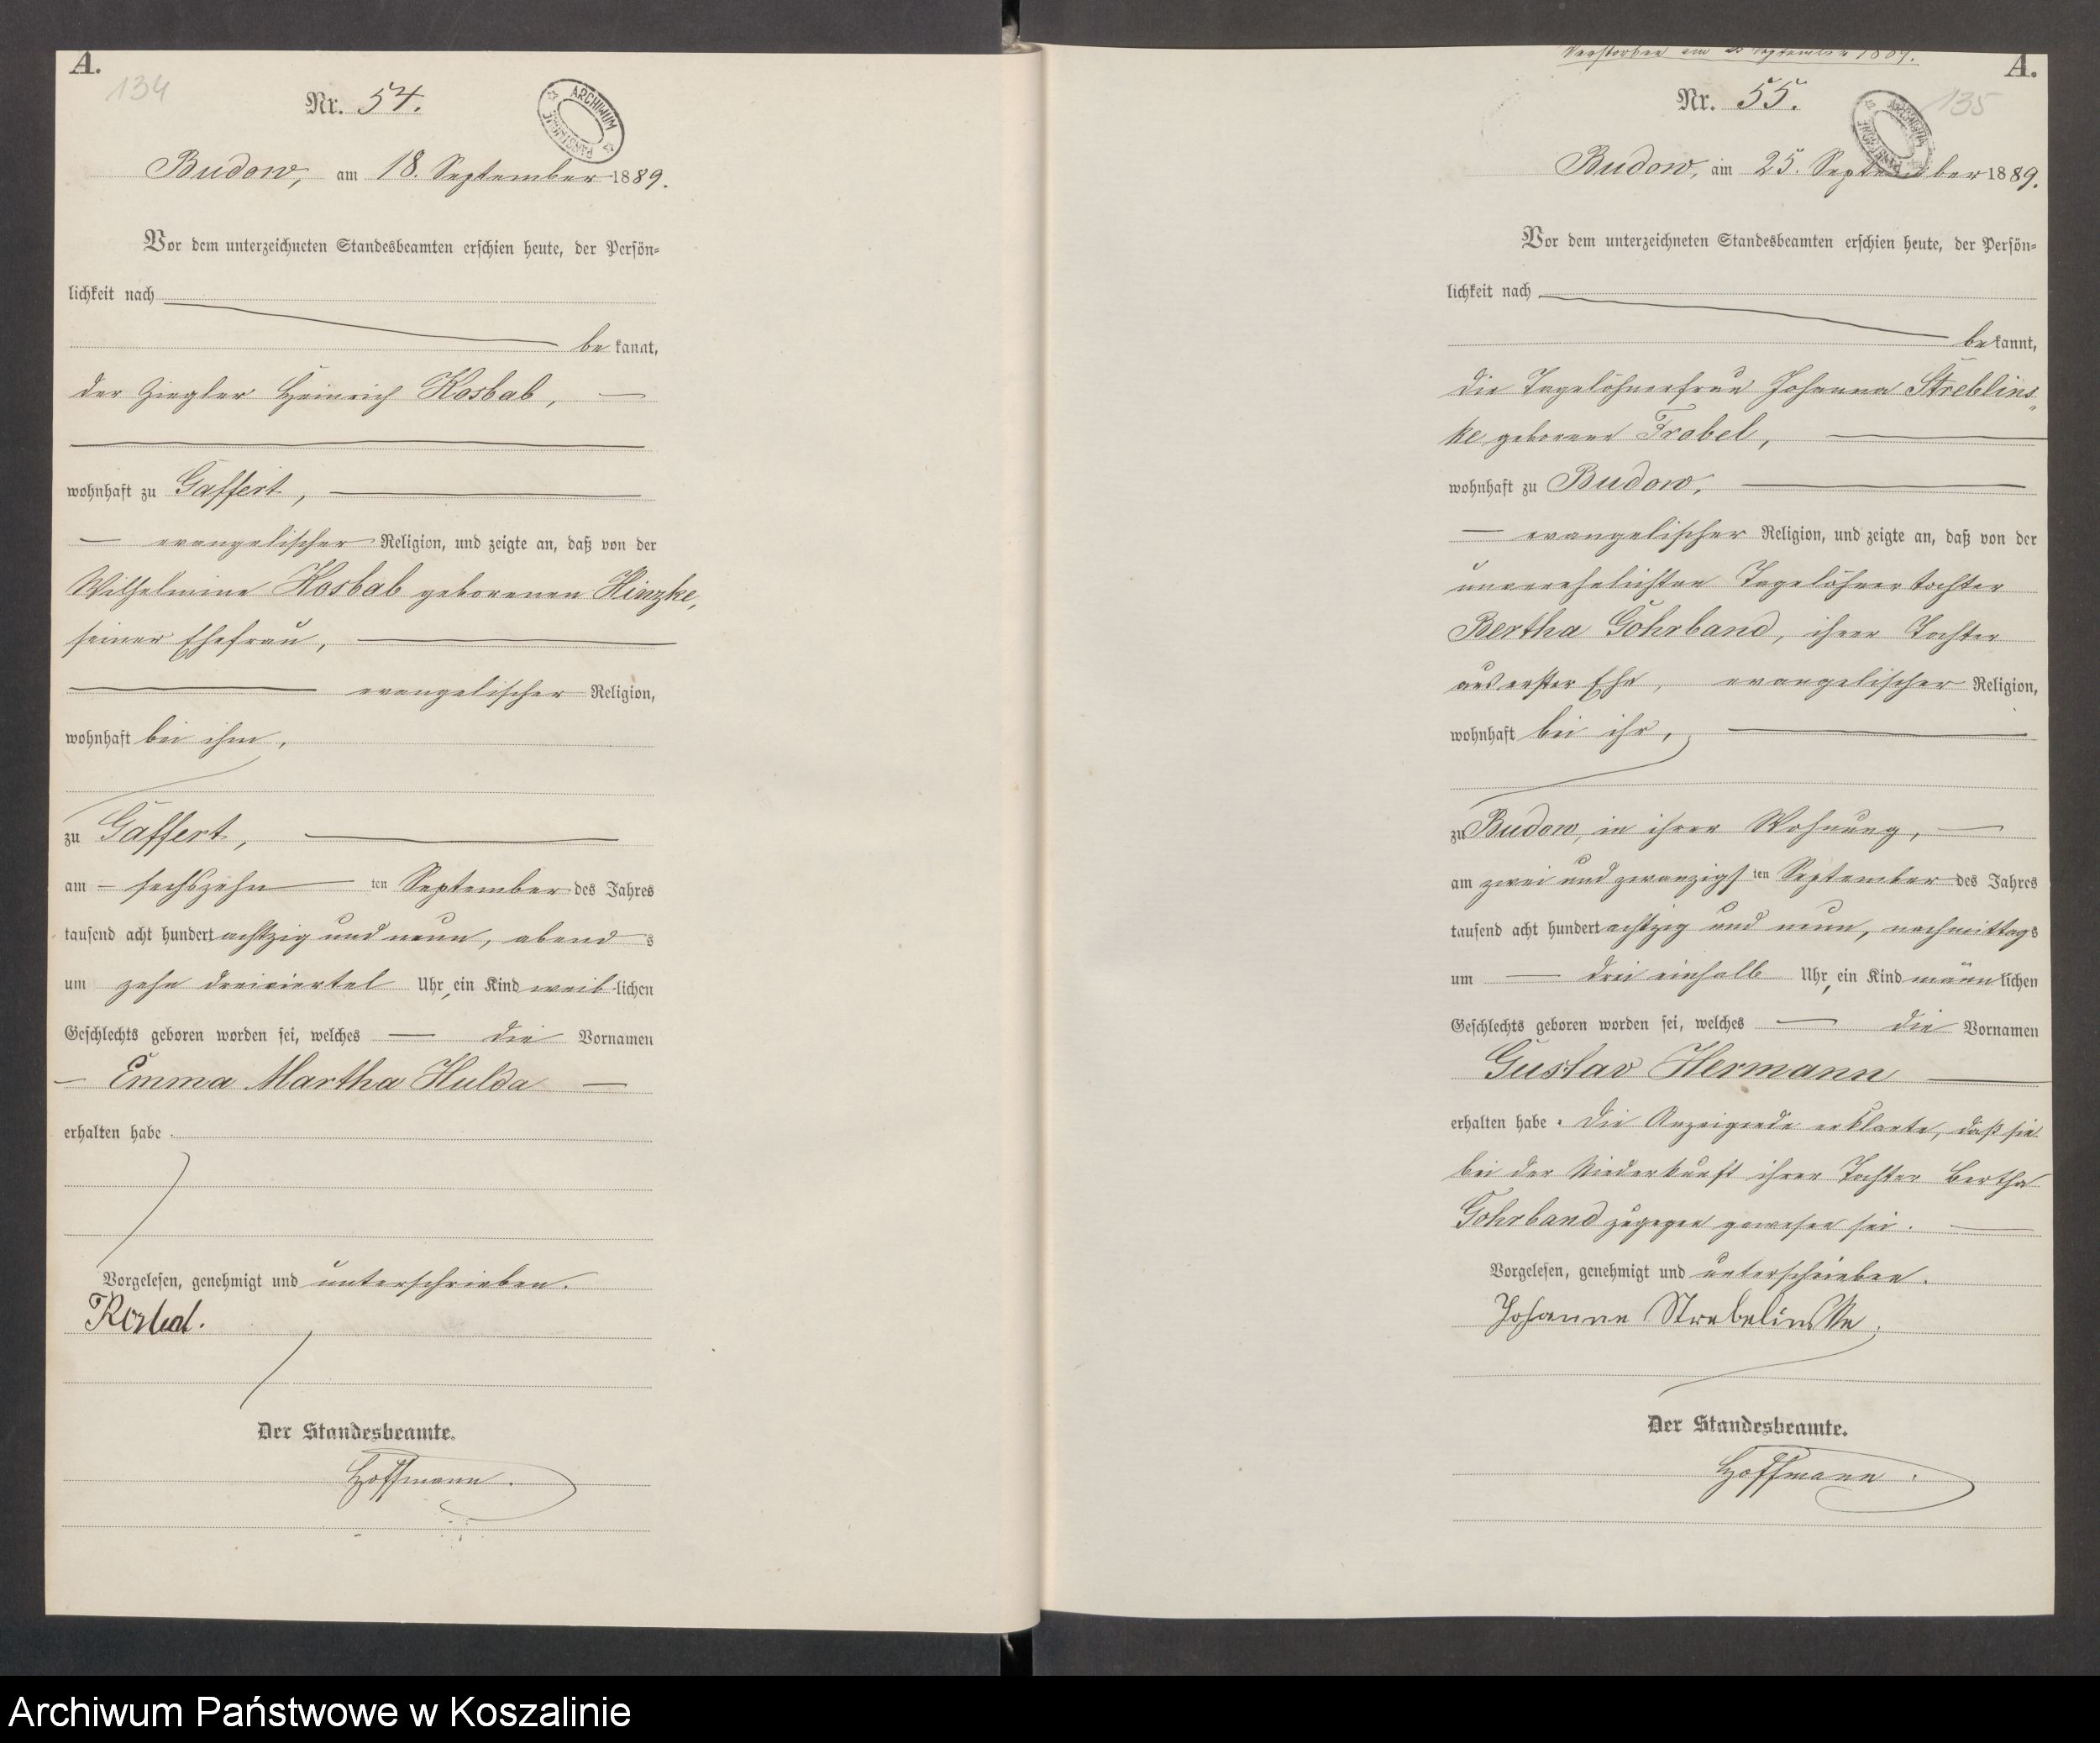 A.
134
Nr. 54.
ARCHIWUM PAŃSTWOWE
Budow, am 18. September 1889.
Vor dem unterzeichneten Standesbeamten erschien heute, der Persön=
lichkeit nach
be kannt,
der Ziegler Heinrich Kosbab,
wohnhaft zu Gaffert,
evangelischer Religion, und zeigte an, daß von der
Wilhelmine Kosbab geborenen Hinzke,
seiner Ehefrau,
evangelischer Religion,
wohnhaft bei ihm,
zu Gaffert,
am sechszehn ten September des Jahres
tausend acht hundert achtzig und neun, abend s
um zehn dreiviertel Uhr, ein Kind weib lichen
Geschlechts geboren worden sei, welches die Vornamen
Emma Martha Hulda
erhalten habe.
Vorgelesen, genehmigt und unterschrieben.
Kosbab.
Der Standesbeamte.
Hoffmann.
Verstorben am 25 September 1889.
A.
Nr. 55.
135
ARCHIWUM PAŃSTWOWE
Budow, am 25. September 1889.
Vor dem unterzeichneten Standesbeamten erschien heute, der Persön=
lichkeit nach
be kannt,
die Tagelöhnerfrau Johanna Streblins„
ke geborene Frobel,
wohnhaft zu Budow,
evangelischer Religion, und zeigte an, daß von der
unverehelichten Tagelöhnertochter
Bertha Gohrband, ihrer Tochter
aus erster Ehe, evangelischer Religion,
wohnhaft bei ihr,
zu Budow, in ihrer Wohnung,
am zwei und zwanzigs ten September des Jahres
tausend acht hundert achtzig und neun, nachmittags
um drei einhalb Uhr, ein Kind männ lichen
Geschlechts geboren worden sei, welches die Vornamen
Gustav Hermann
erhalten habe. Die Anzeigende erklärte, daß sie
bei der Niederkunft ihrer Tochter Bertha
Gohrband zugegen gewesen sei.
Vorgelesen, genehmigt und unterschrieben.
Johanne Strebelinske.
Der Standesbeamte.
Hoffmann.
Archiwum Państwowe w Koszalinie